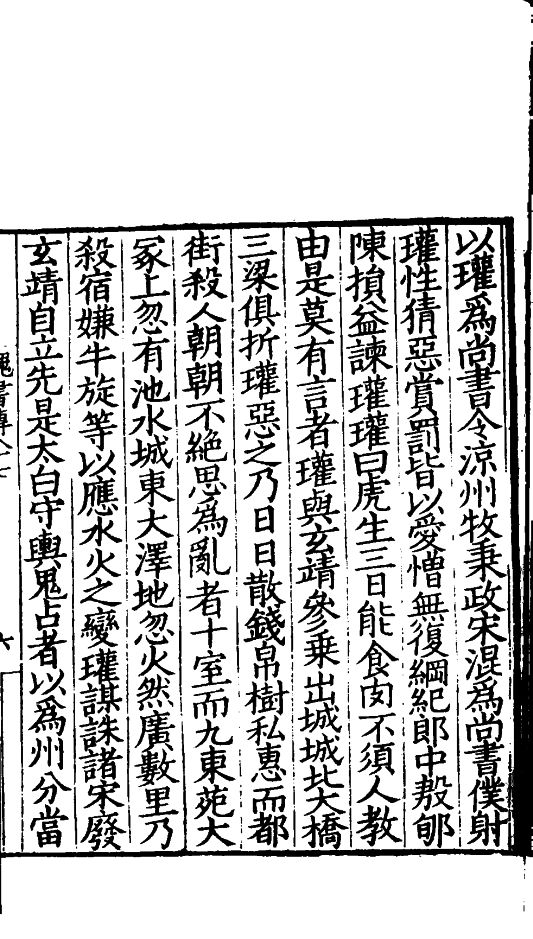 以瓘爲尚書令涼州牧秉政宋混爲尚書僕射
瓘性猜惡賞罰皆以愛憎無復綱紀郎中㪍郇
陳損益諫瓘瓘曰虎生三日能食肉不須人教
由是莫有言者瓘與玄靖參乗出城城北大橋
三梁俱折瓘惡之乃日日散錢帛樹私惠而都
街殺人朝朝不絶思爲亂者十室而九東苑大
冢上忽有池水城東大澤地忽火然廣數里乃
殺宿嫌牛旋等以應水火之變瓘謀誅諸宋廢
玄靖自立先是太白守輿鬼占者以爲州分當
魏書傳八十七
六